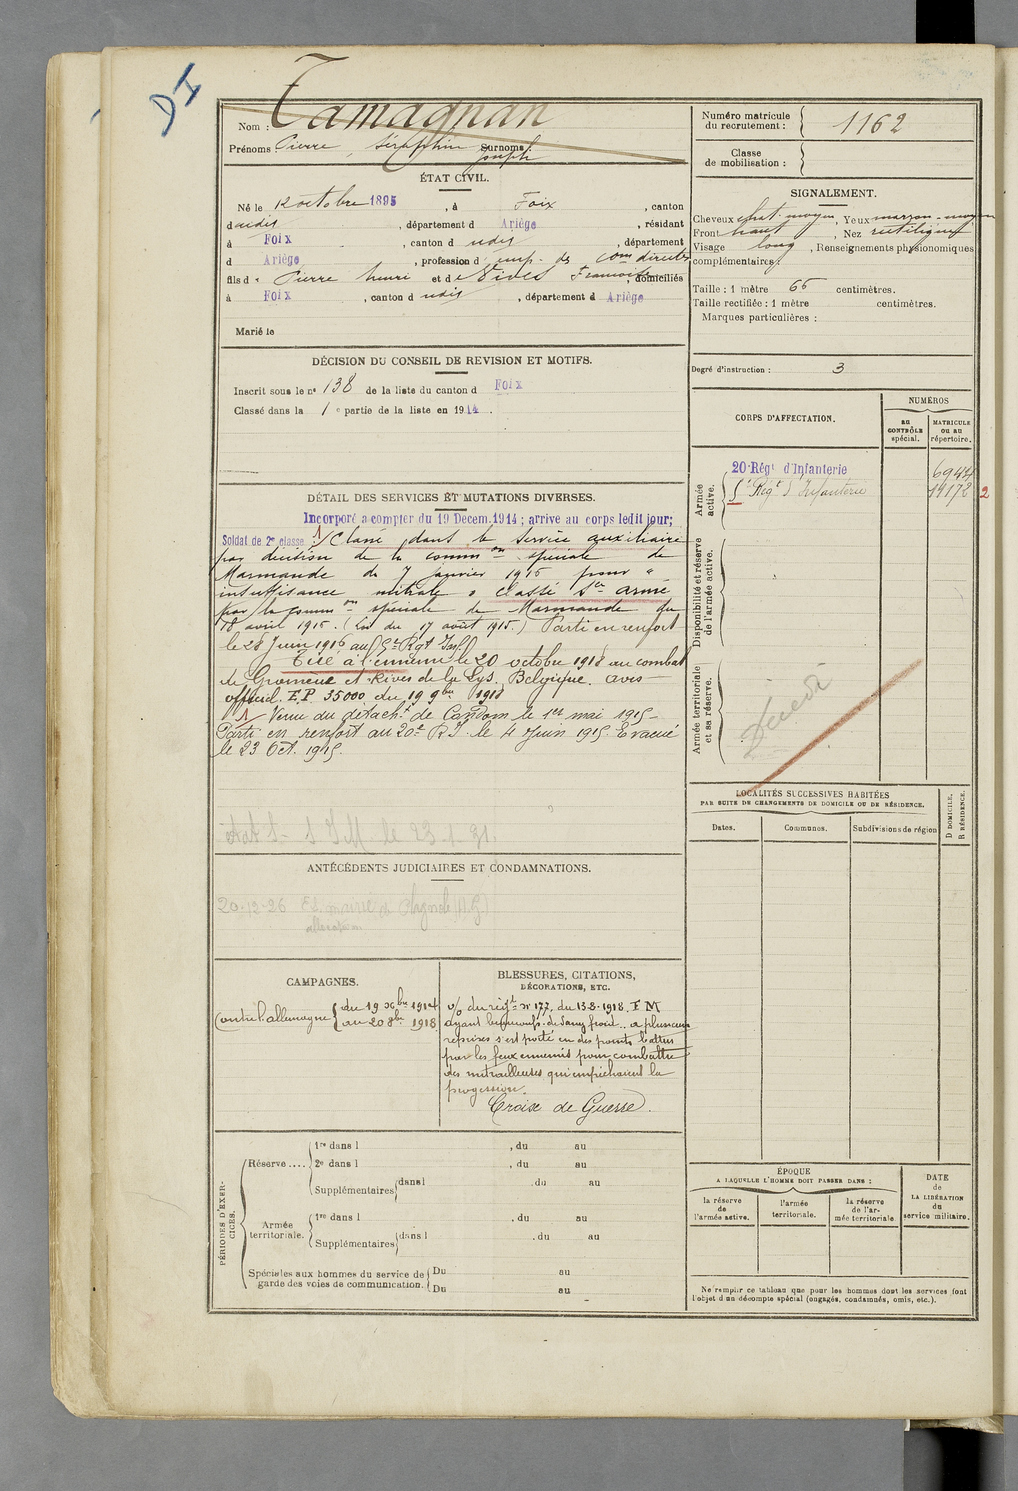 DI
Nom : Tamagnan
Prénoms : Pierre, Séraphin Surnoms : Joseph
Numéro matricule du recrutement : 1162
Classe de mobilisation :
ÉTAT CIVIL.
Né le 12 octobre 1895, à Foix, canton
dudit, département d Ariège, résidant
à Foix, canton d udit, département
d Ariège, profession d' emp. des Con. directes
fils d e Pierre Henri et de Vives Françoise, domiciliés
à Foix, canton d udit, département d Ariège
Marié le
SIGNALEMENT.
Cheveux chat. moyen, Yeux marron-moyen
Front haut, Nez rectiligne
Visage long, Renseignements physionomiques
complémentaires :
Taille : 1 mètre 66 centimètres.
Taille rectifiée : 1 mètre centimètres.
Marques particulières :
Degré d'instruction : 3
DÉCISION DU CONSEIL DE REVISION ET MOTIFS.
Inscrit sous le n° 138 de la liste du canton d Foix
Classé dans la 1 e partie de la liste en 1914.
CORPS D'AFFECTATION.
NUMÉROS
au CONTRÔLE spécial.
MATRICULE ou au répertoire.
Armée active.
20e Régt d'Infanterie 6944
Régt d'Infanterie 14172 2
Disponibilité et réserve de l'armée active.
Armée territoriale et sa réserve.
Décédé
DÉTAIL DES SERVICES ET MUTATIONS DIVERSES.
Incorporé à compter du 19 Decem.1914 ; arrivé au corps ledit jour;
Soldat de 2e classe. 1/ Classé dans le service auxiliaire
par décision de la common spéciale de
Marmande du 7 janvier 1915 pour "
insuffisance mitrale " classé Sce armé
par la common spéciale de Marmande du
18 avril 1915. (Loi du 17 août 1915.) Parti en renfort
le 28 Juin 1916 au Rgt Inf.
Tué à l'ennemi le 20 octobre 1918 au combat
de Gramene et Rives de la Lys. Belgique. avis
officiel. F.P. 35000 du 19 9bre 1918
1/ Venu du détacht de Condom le 1er mai 1915 -
Parti en renfort au 20e R.I. le 4 Juin 1915. Evacué
le 23 Oct. 1915.
le 23.1.31.
LOCALITÉS SUCCESSIVES HABITÉES
PAR SUITE DE CHANGEMENTS DE DOMICILE OU DE RÉSIDENCE.
Dates.
Communes.
Subdivisions de région
D DOMICILE, R RÉSIDENCE.
ANTÉCÉDENTS JUDICIAIRES ET CONDAMNATIONS.
20-12-26 mairie de
CAMPAGNES.
Contre l'allemagne { du 19 Xbre 1914
au 20 8bre 1918
BLESSURES, CITATIONS,
DÉCORATIONS, ETC.
O/ du régt N° 177, du 13.8.1918. F M
ayant beaucoup de sang froid. a plusieurs
reprises s'est porté en des points battus
par les feux ennemis pour combattre
des mitrailleuses qui empêchaient la
progression.
Croix de Guerre.
PÉRIODES D'EXERCICES.
Réserve ....
1re dans l , du au
2e dans l , du au
Supplémentaires dans l , du au
Armée territoriale.
1re dans l , du au
Supplémentaires dans l , du au
Spéciales aux hommes du service de garde des voies de communication.
Du au
Du au
ÉPOQUE
A LAQUELLE L'HOMME DOIT PASSER DANS :
la réserve de l'armée active.
l'armée territoriale.
la réserve de l'armée territoriale
DATE de LA LIBÉRATION du service militaire.
Ne remplir ce tableau que pour les hommes dont les services font
l'objet d'un décompte spécial (engagés, condamnés, omis, etc.).